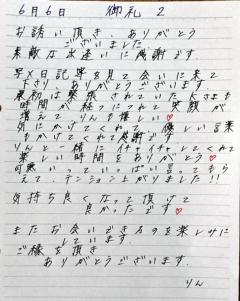 6月6日 御礼 2
お誘い頂き、ありがとう
ございました
素敵な出逢いに感謝です
写メ日記等を見て会いに来て
下さり、ありがとうございます。
最初は緊張されていたNさまも
時間が経つにつれ、笑顔が
増えて、りんも嬉しい♡
気にかけてくれて、優しい言葉
をかけてくれて感謝♪
りんと一緒にイチャイチャしてくれて
楽しい時間をありがとう♡
可愛いっていっぱい言ってもら
えて、テンション上がりました!!
気持ち良くなって頂けて
良かったです♡
またお会いできるのを楽しみに
しています
ご縁を頂き
ありがとうございます.
りん